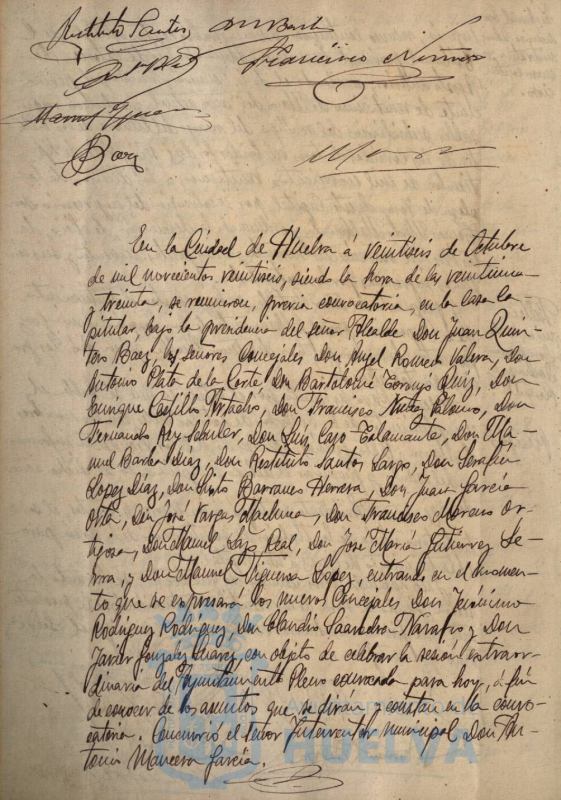 Restituto Santos
Francisco Núñez
Manuel Figueroa
Baez
En la Ciudad de Huelva á veintiseis de Octubre
de mil novecientos veintiseis, siendo la hora de las veintiuna
y treinta, se reunieron, previa convocatoria, en la Casa Ca-
pitular, bajo la presidencia del señor Alcalde Don Juan Quin-
tero Baez, los señores Concejales Don Angel Romero Valera, Don
Antonio Plata de la Corte, Don Bartolomé Ruiz, Don
Enrique Castillo Machado, Don Francisco Núñez Don
Fernando Rey Don Luis Cazo Talamante, Don Ma-
nuel Barba Díaz, Don Restituto Santos Don Serafín
Lopez Díaz, Don Sixto Barranco Herrera, Don Juan García
Orta, Don José Vargas Machuca, Don Francisco Moreno Or-
tigosa, Don Manuel Real, Don José María Gutierrez Se-
rra, y Don Manuel Figueroa Lopez, entrando en el momen-
to que se expresará los nuevos Concejales Don Jerónimo
Rodriguez Rodriguez, Don Claudio Saavedra Navarro y Don
Javier González Suarez, con objeto de celebrar la sesión extraor-
dinaria del Ayuntamiento Pleno convocada para hoy, á fin
de conocer de los asuntos que se dirán y constan en la convo-
catoria. Concurrió el señor Interventor municipal Don An-
tonio Mancera García.
HUELVA